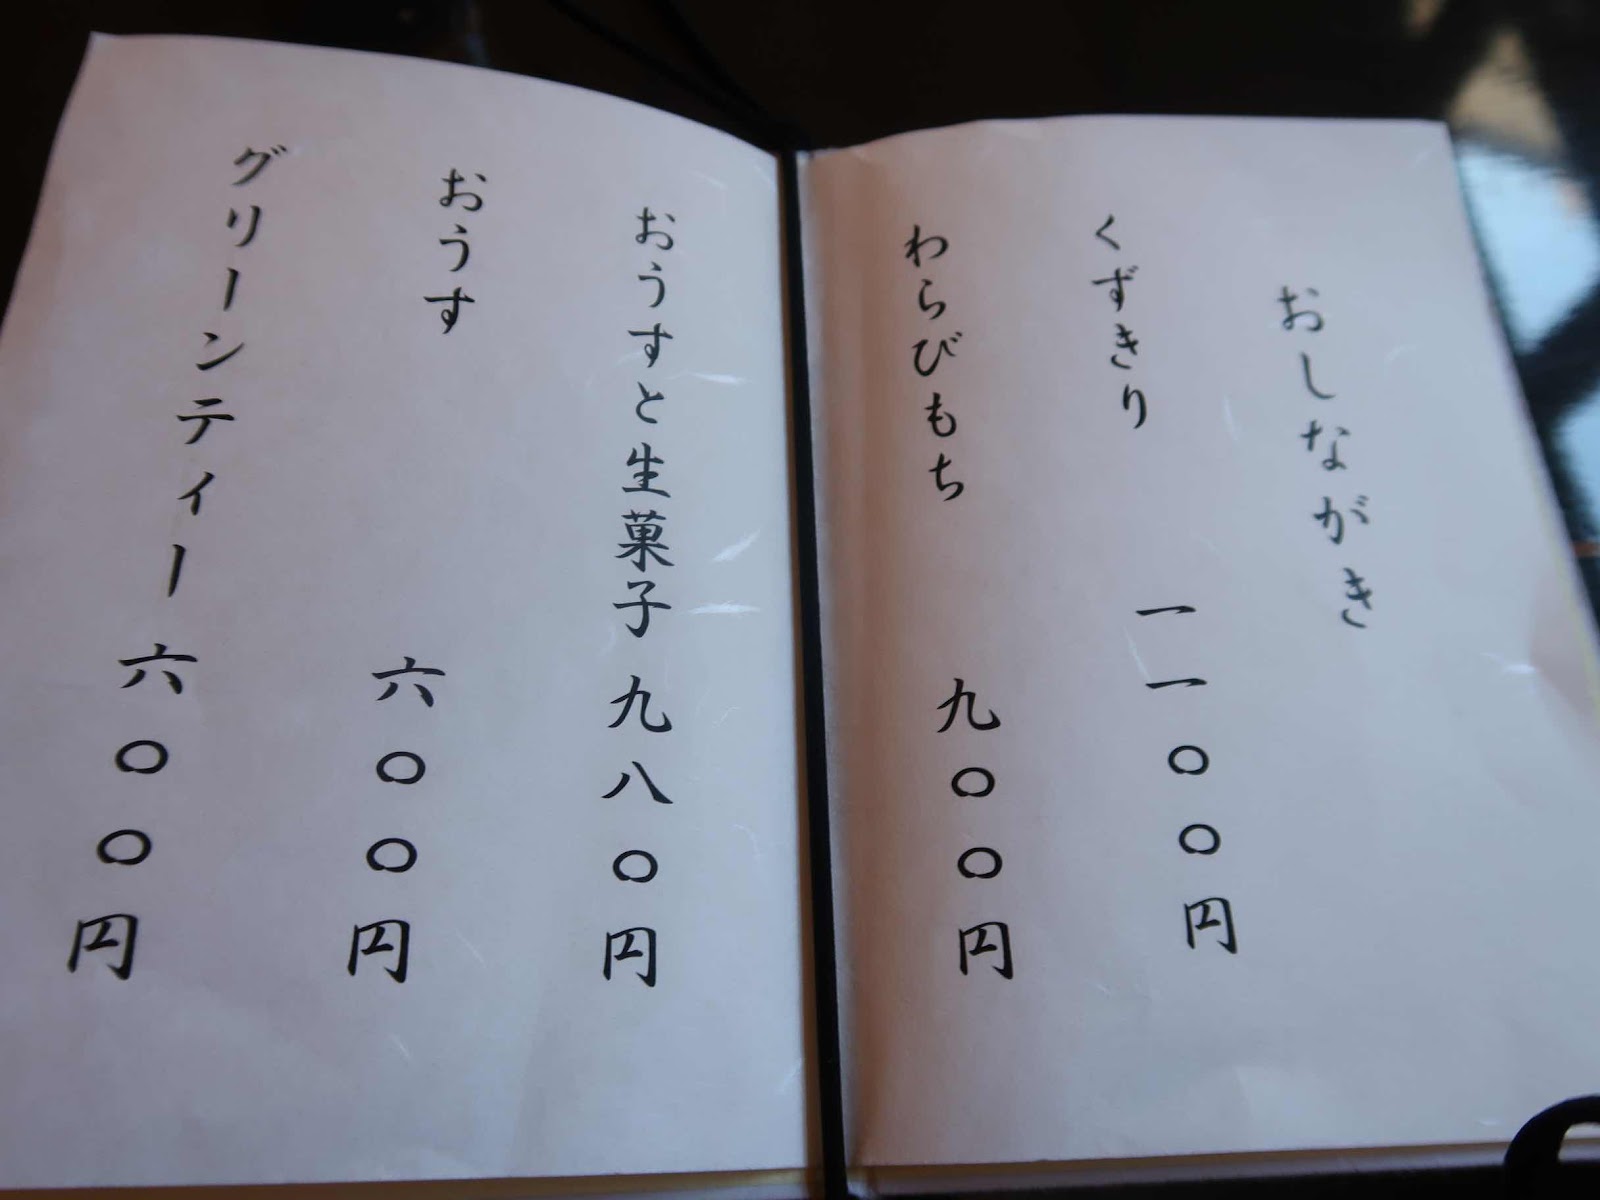 おしながき
くずきり 一一〇〇円
わらびもち 九〇〇円
おうすと生菓子 九八〇円
おうす 六〇〇円
グリーンティー 六〇〇円